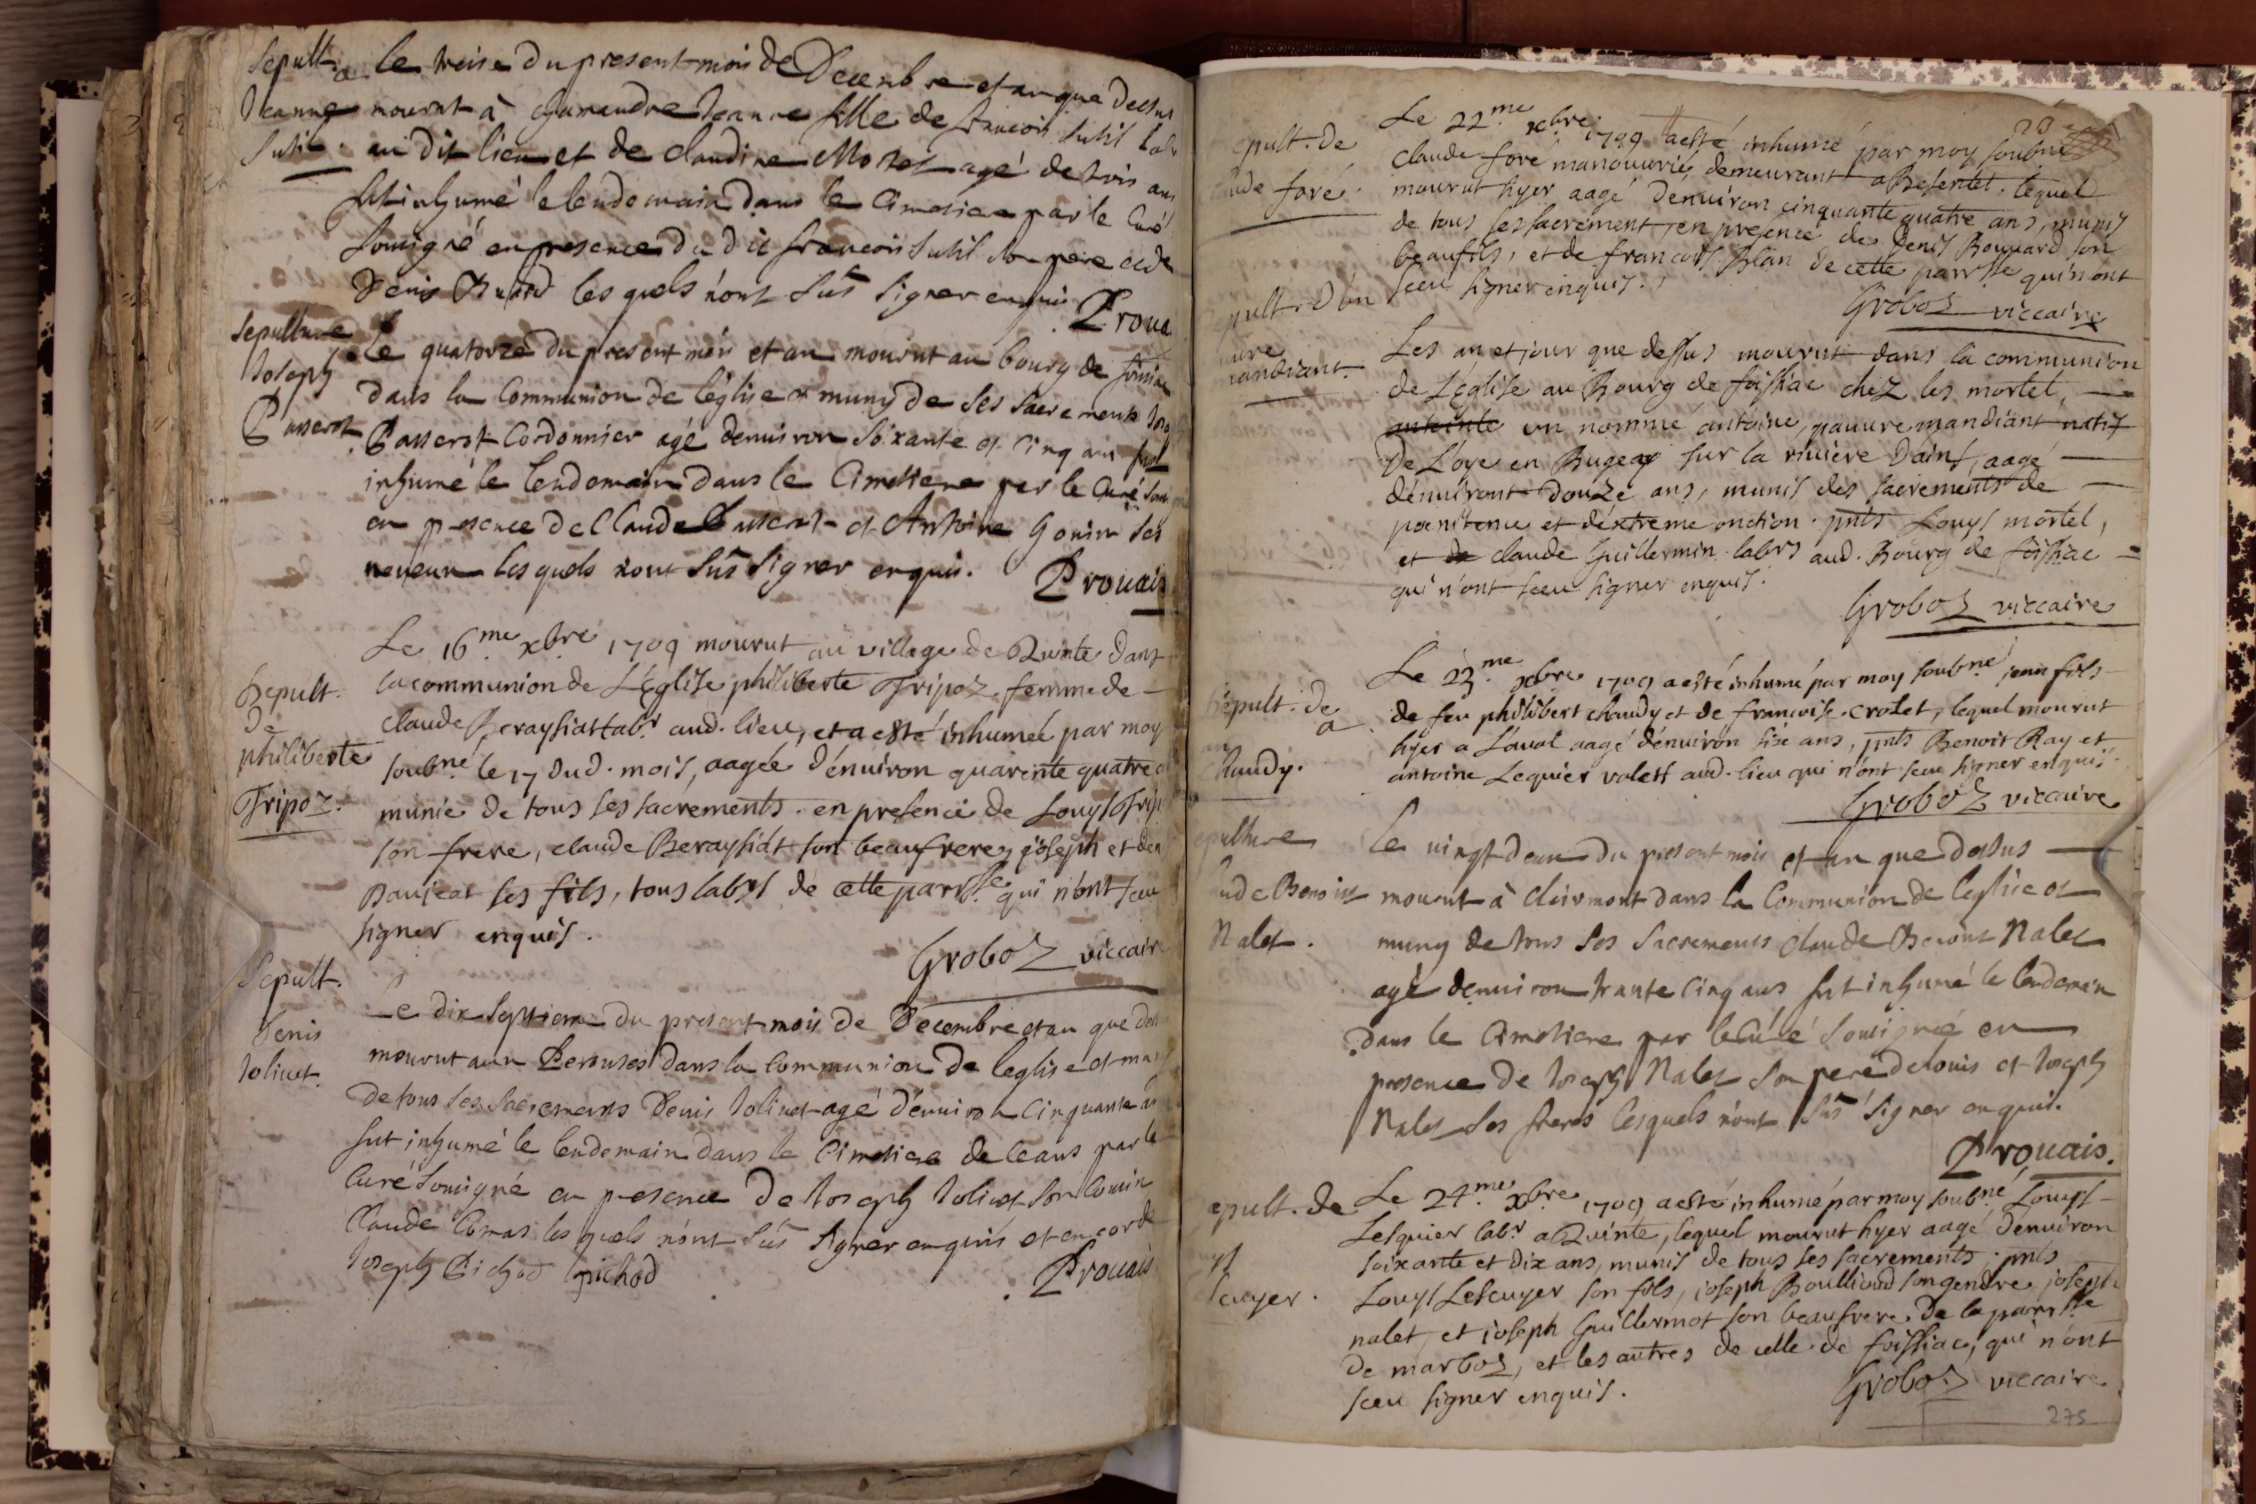 Sepult. a
Jeanne
Sutil.
le treise du present mois de Decembre et an que dessus
mourut à Jeanne fille de francois Sutil lab
au dit lieu et de Claudine Mortel agé de trois ans
fut inhumé le lendemain dans le Cimetiere par le Curé
soussigné en presence du dit francois Sutil son pere et de
Denis Buard les quels n'ont sus signer enquis
Proua
Sepulture
Joseph
Passerot.
Le quatorze du present mois et an mourut au bourg de
dans la Communion de l'église et muny de ses sacrements Jos
Passerot Cordonnier agé denviron soixante et cinq ans fut
inhumé le lendemain dans le Cimetiere par le Curé sous
en presence de Claude Passerot et Antoine Gonin ses
neveux les quels n'ont sus signer enquis.
Prouais
Sepult.
De
philiberte
Tripoz.
Le 16.me xbre 1709 mourut au village de Quinte dans
la communion de L'Eglise philiberte Tripoz femme de
claude Beraysiat labr. aud. lieu, et a esté inhumée par moy
soubné le 17 dud. mois, aagée d'enuiron quarente quatre a
munie de tous ses sacrements. en presence de Louys Trip
son frere, claude Beraysiat son beaufrere, joseph et den
ses fils, tous labrs de cette parisse qui n'ont sceu
signer enquis.
Groboz viccaire
Sepult.
Denis
Jolivet.
Le dix septieme du present mois de Decembre et an que dess
mourut aux Perouses dans la Communion de leglise et muny
de tous ses sacrements Denis Jolivet agé d'enuiron Cinquante an
fut inhumé le lendemain dans le Cimetiere de ceans par le
Curé soussigné en presence de Joseph Jolivet son Cousin
Claude Comas les quels n'ont sus signer enquis et encor de
Joseph Pichod pichod
Prouais
epult. de
aude foré.
Le 22.me xbre 1709 a esté inhumé par moy soubné
claude foré manouurié, demeurant a lequel
mourut hyer aagé denuiron cinquante quatre ans, munis
de tous ses sacrement, en presence de Denis Bouuard son
beaufils, et de francois Blan de cette parisse qui n'ont
sceu signer enquis.
Groboz viccaire
epult. d'un
uure
mandiant.
Les an et jour que dessus mourut dans la communion
de L'eglise au Bourg de foissiac chez les mortel,
antoinle un nommé antoine, pauure mandiant natif
De L'oye en Bugeay sur la riuiere Daint, aagé
dénuiront douze ans, munis des sacrements de
poenitence et dextreme onction. pnts Louys mortel,
et de claude Guillermin labrs aud. Bourg de foissiac
qui n'ont sceu signer enquis.
Groboz viccaire
Sepult. de
a
an
Chaudy.
Le 23.me xbre 1709 a esté inhumé par moy soubné jean fils
de feu philibert chaudy et de francoise crozet, lequel mourut
hyer a Laual aagé dénuiron six ans, pnts Benoit Ray et
antoine Lequier valets aud. lieu qui n'ont sceu signer enquis.
Groboz viccaire
epulture
aude Benoist
Nalet.
Le vingt deux du present mois et an que dessus
mourut à Clairmont dans la Communion de leglise et
muny de tous ses sacrements Claude Benoist Nalet
agé denuiron trante Cinq ans fut inhumé le lendemain
dans le Cimetiere par le Curé soussigné en
presence de Joseph Nalet son pere de louis et Joseph
Nalet ses freres lesquels n'ont sus signer enquis.
Prouais.
epult. de
uys
Lescuyer.
Le 24.me xbre 1709 a esté inhumé par moy soubné Louys
Lesquier labr a Quinte, lequel mourut hyer aagé denuiron
soixante et dix ans, munis de tous ses sacrements, pnts
Louys Lescuyer son fils, joseph Boulliond son gendre, joseph
nalet, et joseph Guillermot son beaufrere, de la parisse
de marboz, et les autres de celle de foissiac, qui n'ont
sceu signer enquis.
Groboz viccaire
275